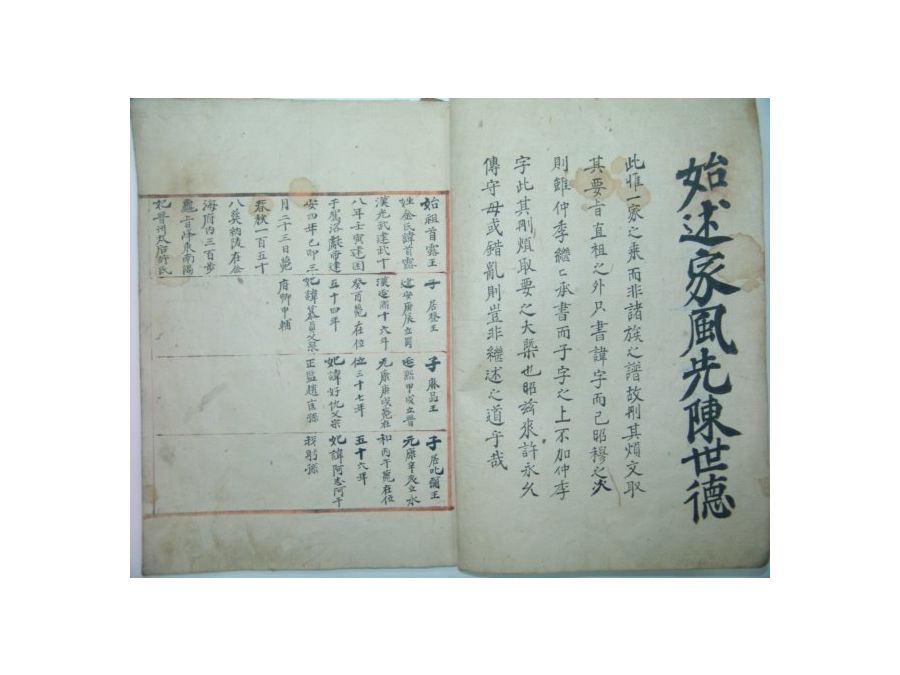 始述家風先陳世德
此惟一家之乘而非諸族之譜故刑其煩文取
其要旨直祖之外只書諱字而已昭穆之次
則雖仲季繼亡承書而子字之上不加仲季
字此其刑煩取要之大槩也昭玆來許永久
傳守毋或錯亂則豈非繼述之道乎哉
始祖首露王
姓金氏諱首露
漢光武建武十
八年壬寅建国
于駕洛獻帝建
安四年己卯三
月二十三日薨
春秋一百五十
八葬納陵在金
海府内三百步
龜旨峰東南陽
妃普州太后許氏
子 居登王
建安庚辰立蜀
漢延熙十六年
癸酉薨在位
五十四年
妃諱慕貞父泉
府卿申輔
子 麻品王
延熙甲戌立晉
元康庚戌薨在
位三十七年
妃諱好仇父宗
正監趙匡孫
子 居叱彌王
元康辛亥立永
和丙午薨在位
五十六年
妃諱阿志阿干
我躬孫